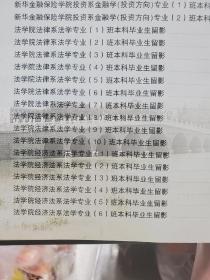 新华金融保险学院投资系金融学(投资方向)专业(1)班本科
新华金融保险学院投资系金融学(投资方向)专业(2)班本科
法学院法律系法学专业(1)班本科毕业生留影
法学院法律系法学专业(2)班本科毕业生留影
法学院法律系法学专业(3)班本科毕业生留影
法学院法律系法学专业(4)班本科毕业生留影
法学院法律系法学专业(5)班本科毕业生留影
法学院法律系法学专业(6)班本科毕业生留影
法学院法律系法学专业(7)班本科毕业生留影
法学院法律系法学专业(8)班本科毕业生留影
法学院法律系法学专业(9)班本科毕业生留影
法学院法律系法学专业(10)班本科毕业生留影
法学院经济法系法学专业(1)班本科毕业生留影
法学院经济法系法学专业(2)班本科毕业生留影
法学院经济法系法学专业(3)班本科毕业生留影
法学院经济法系法学专业(4)班本科毕业生留影
法学院经济法系法学专业(5)班本科毕业生留影
法学院经济法系法学专业(6)班本科毕业生留影